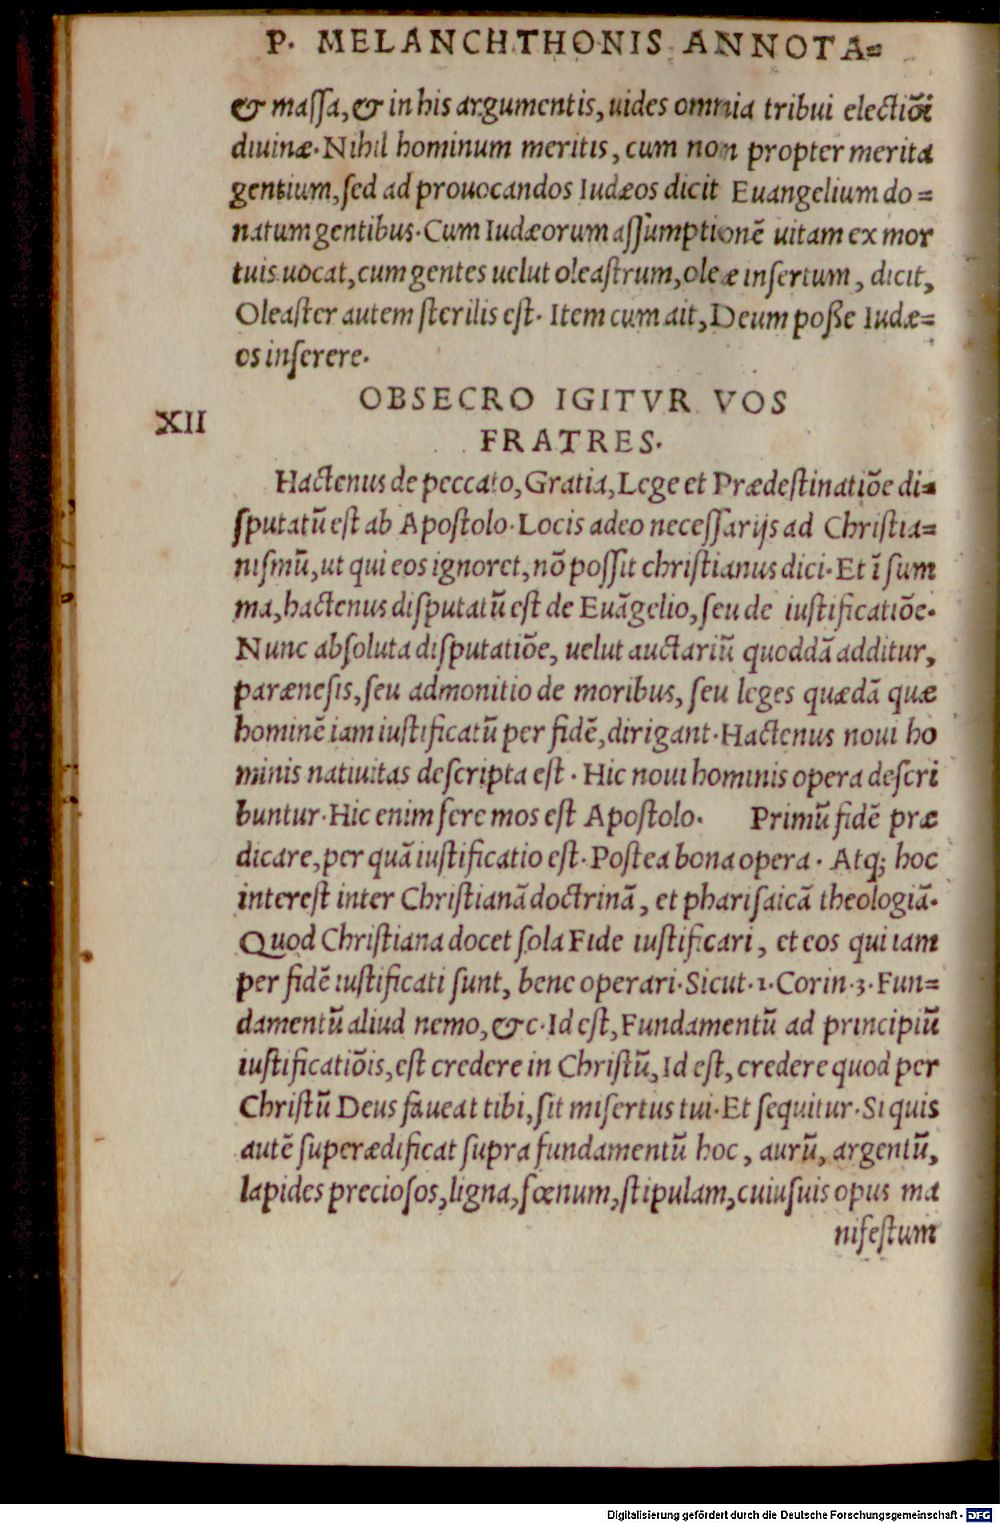 P. MELANCHTHONIS ANNOTA=
& maſſa, & in his argumentis, uides omnia tribui electiōi
diuinæ. Nihil hominum meritis, cum non propter merita
gentium, ſed ad prouocandos Iudæos dicit Euangelium do=
natum gentibus. Cum Iudæorum aſſumptionē uitam ex mor
tuis uocat, cum gentes uelut oleaſtrum, oleæ inſertum, dicit,
Oleaſter autem ſterilis eſt. Item cum ait, Deum poße Iudæ=
os inſerere.
OBSECRO IGITVR VOS
XII
FRATRES.
Hactenus de peccato, Gratia, Lege et Prædeſtinatiōe di=
ſputatū eſt ab Apoſtolo. Locis adeo neceſſarijs ad Chriſtia=
niſmū, ut qui eos ignoret, nō poſſit chriſtianus dici. Et ī ſum
ma, hactenus diſputatū eſt de Euāgelio, ſeu de iuſtificatiōe.
Nunc abſoluta diſputatiōe, uelut auctariū quoddā additur,
paræneſis, ſeu admonitio de moribus, ſeu leges quædā quæ
hominē iam iuſtificatū per fidē, dirigant. Hactenus noui ho
minis natiuitas deſcripta eſt. Hic noui hominis opera deſcri
buntur. Hic enim fere mos eſt Apoſtolo. Primū fidē præ
dicare, per quā iuſtificatio eſt. Poſtea bona opera. Atq; hoc
intereſt inter Chriſtianā doctrinā, et phariſaicā theologiā.
Quod Chriſtiana docet ſola Fide iuſtificari, et eos qui iam
per fidē iuſtificati ſunt, bene operari. Sicut. 1. Corin. 3. Fun=
damentū aliud nemo, &c. Id eſt, Fundamentū ad principiū
iuſtificatiōis, eſt credere in Chriſtū, Id eſt, credere quod per
Chriſtū Deus faueat tibi, ſit miſertus tui. Et ſequitur. Si quis
autē ſuperædificat ſupra fundamentū hoc, aurū, argentū,
lapides precioſos, ligna, fœnum, ſtipulam, cuiuſuis opus ma
nifeſtum
Digitalisierung gefördert durch die Deutsche Forschungsgemeinschaft - DFG